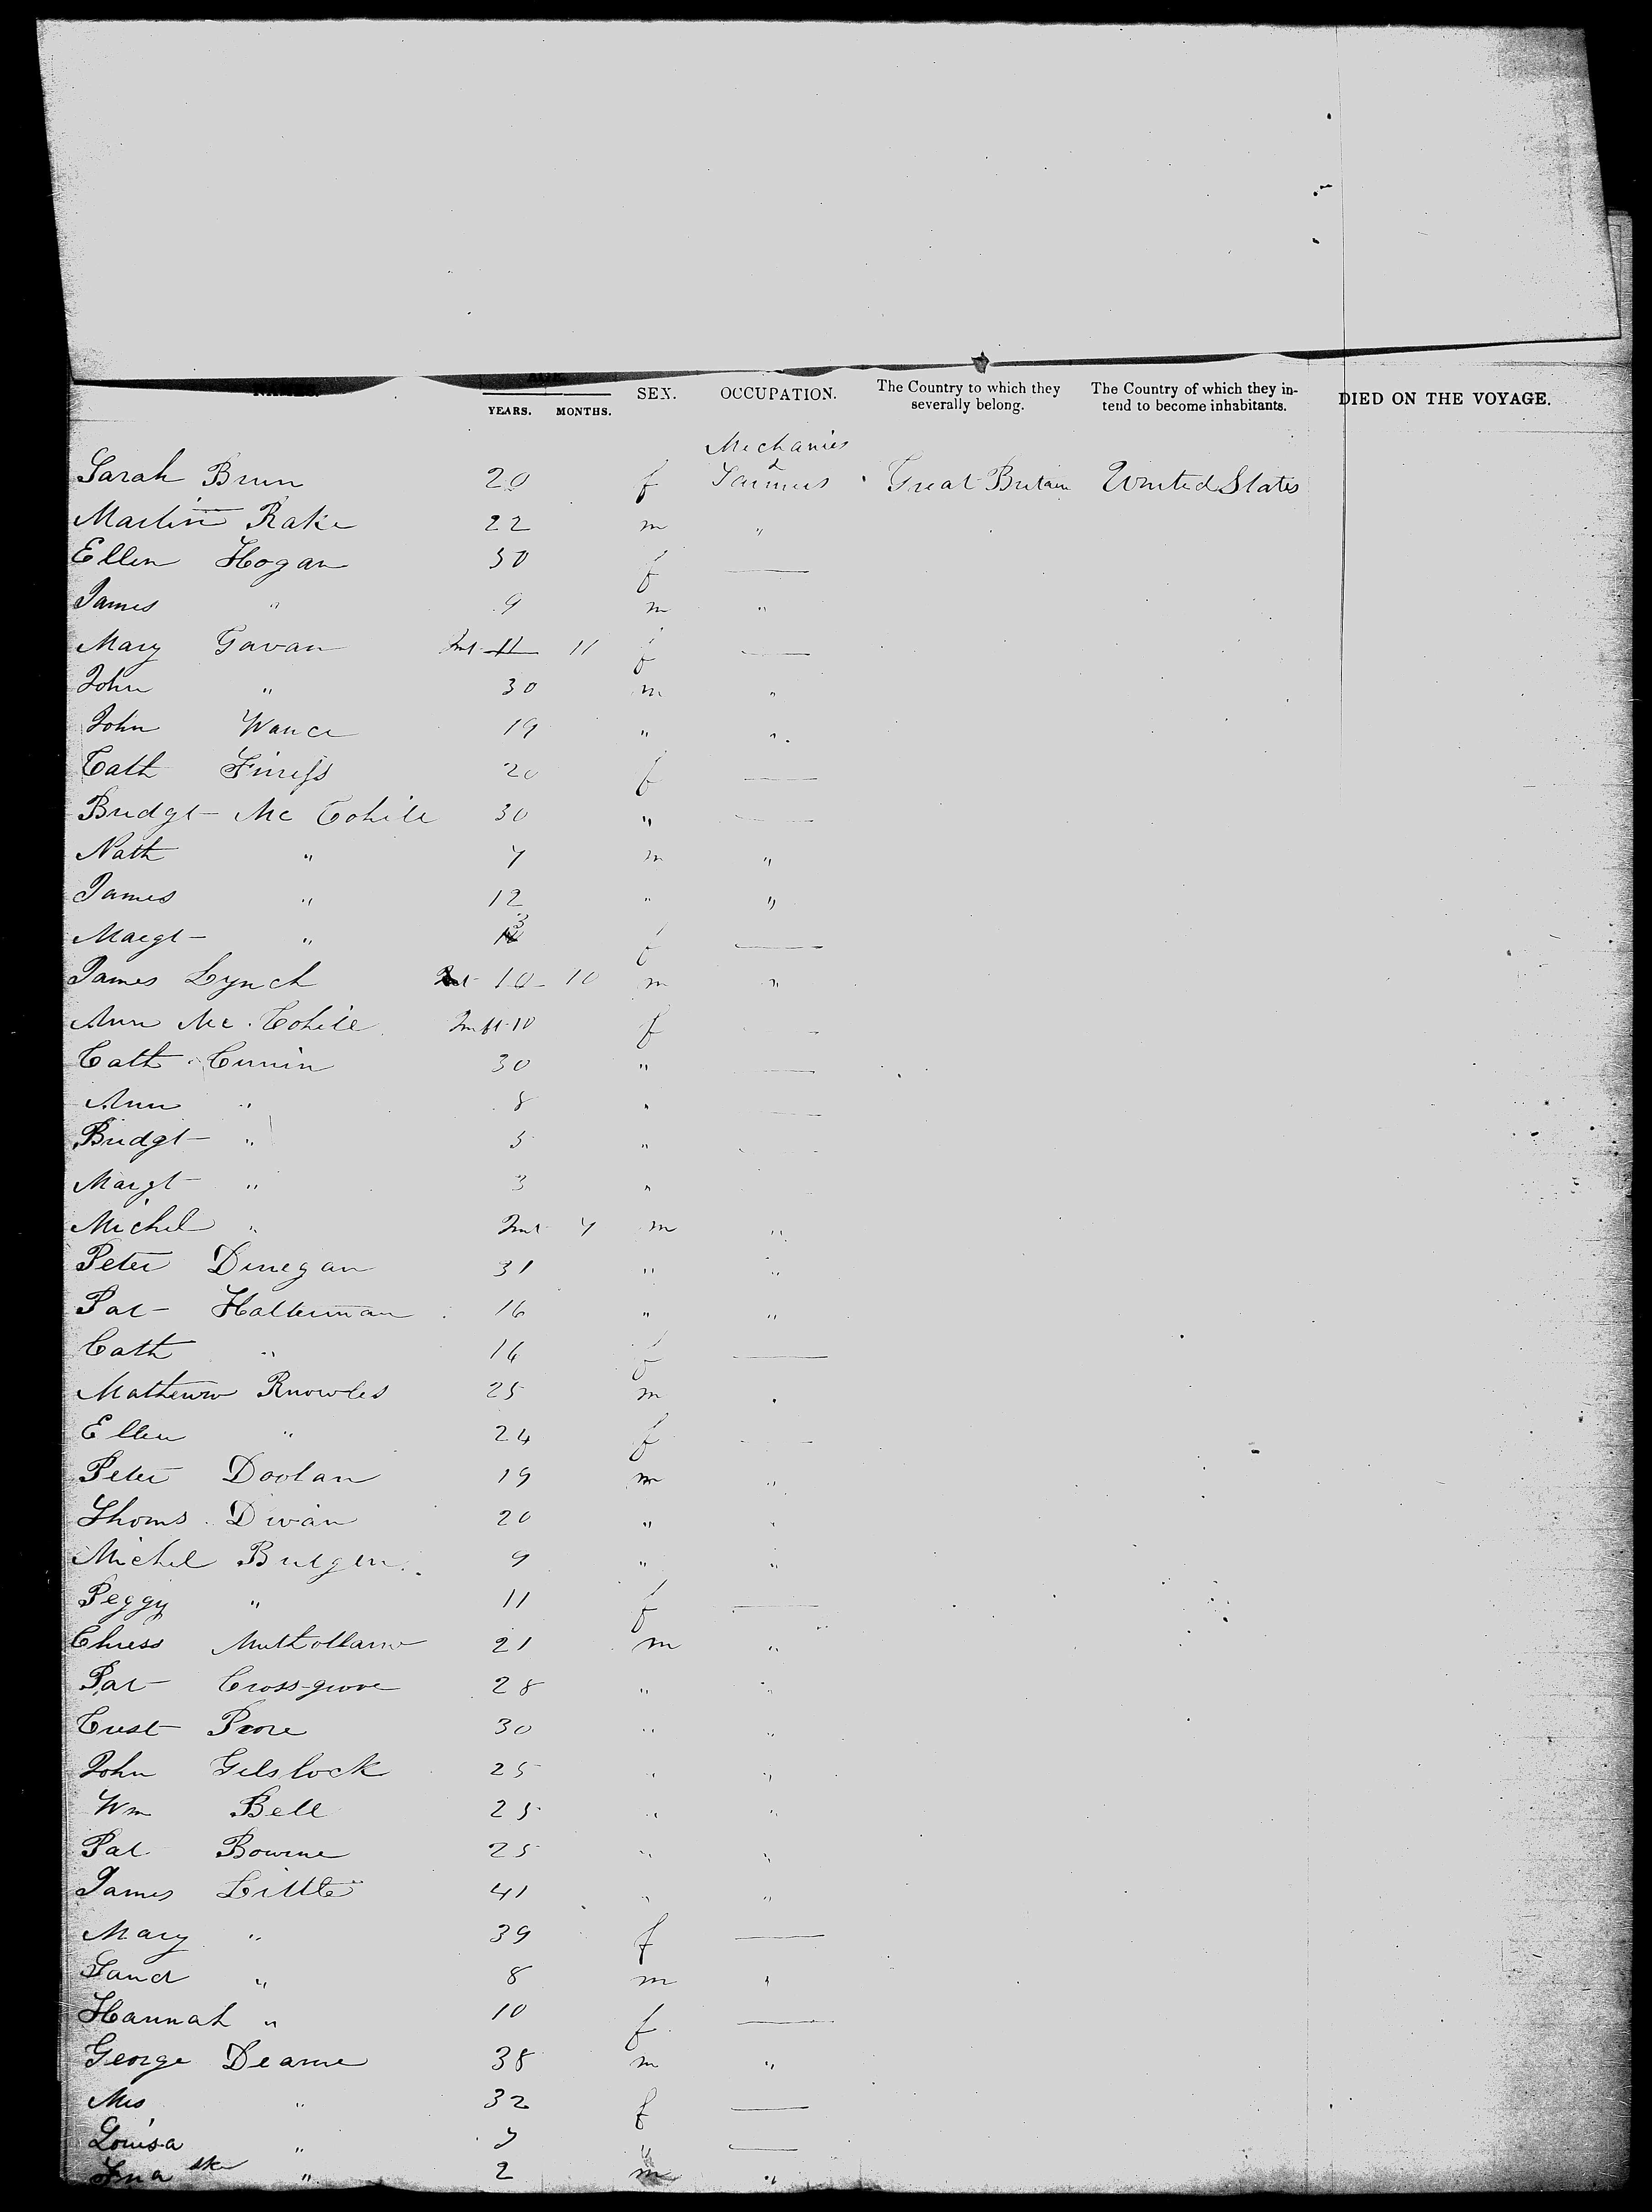 NAMES. AGE. YEARS. MONTHS. SEX. OCCUPATION. The Country to which they severally belong. The Country of which they intend to become inhabitants. DIED ON THE VOYAGE.
Mechanics
Sarah Brun 20 f & Farmers Great Britain United States
Martin Rake 22 m "
Ellen Hogan 30 f —
James " 9 m "
Mary Gavan Inf 11 11 f —
John " 30 m "
John Wance 19 " "
Cath Finess 20 f —
Bridgt Mc Cohile 30 " —
Nath " 7 m "
James " 12 " "
Margt " 3 f —
James Lynch Inf 10 10 m "
Ann Mc Cohile Inft 10 f —
Cath Cunin 30 " —
Ann " 8 " —
Bridgt " 5 "
Margt " 3 "
Michel " Inf 7 m "
Peter Dinegan 31 " "
Pat Halterman 16 " "
Cath " 14 f —
Mathew Knowles 25 m "
Ellen " 24 f —
Peter Doolan 19 m "
Thoms Divan 20 " "
Michel Bulgen 9 " "
Peggy " 11 f —
Chriss Mulhollam 21 m "
Pat Cross-grove 28 " "
Crist Pore 30 " "
John Gilslock 25 " "
Wm Bell 25 " "
Pat Bowrne 25 " "
James Little 41 " "
Mary " 39 f —
" 8 m "
Hannah " 10 f —
George Dearne 38 m "
Mrs " 32 f —
Louisa " 7 " —
" 2 m "